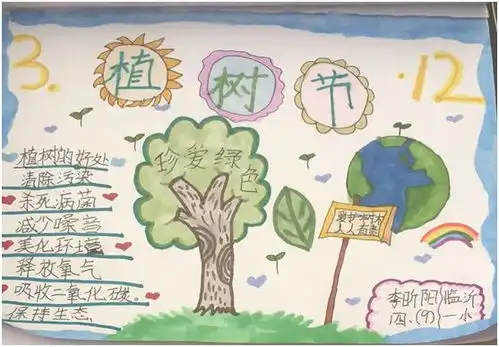 3.
植树节
·12
植树的好处
清除污染
杀死病菌
减少噪音
美化环境
释放氧气
吸收二氧化碳。
保持生态
珍爱绿
色
爱护树木
人人有责
李昕阳 临沂
四.(9) 一小